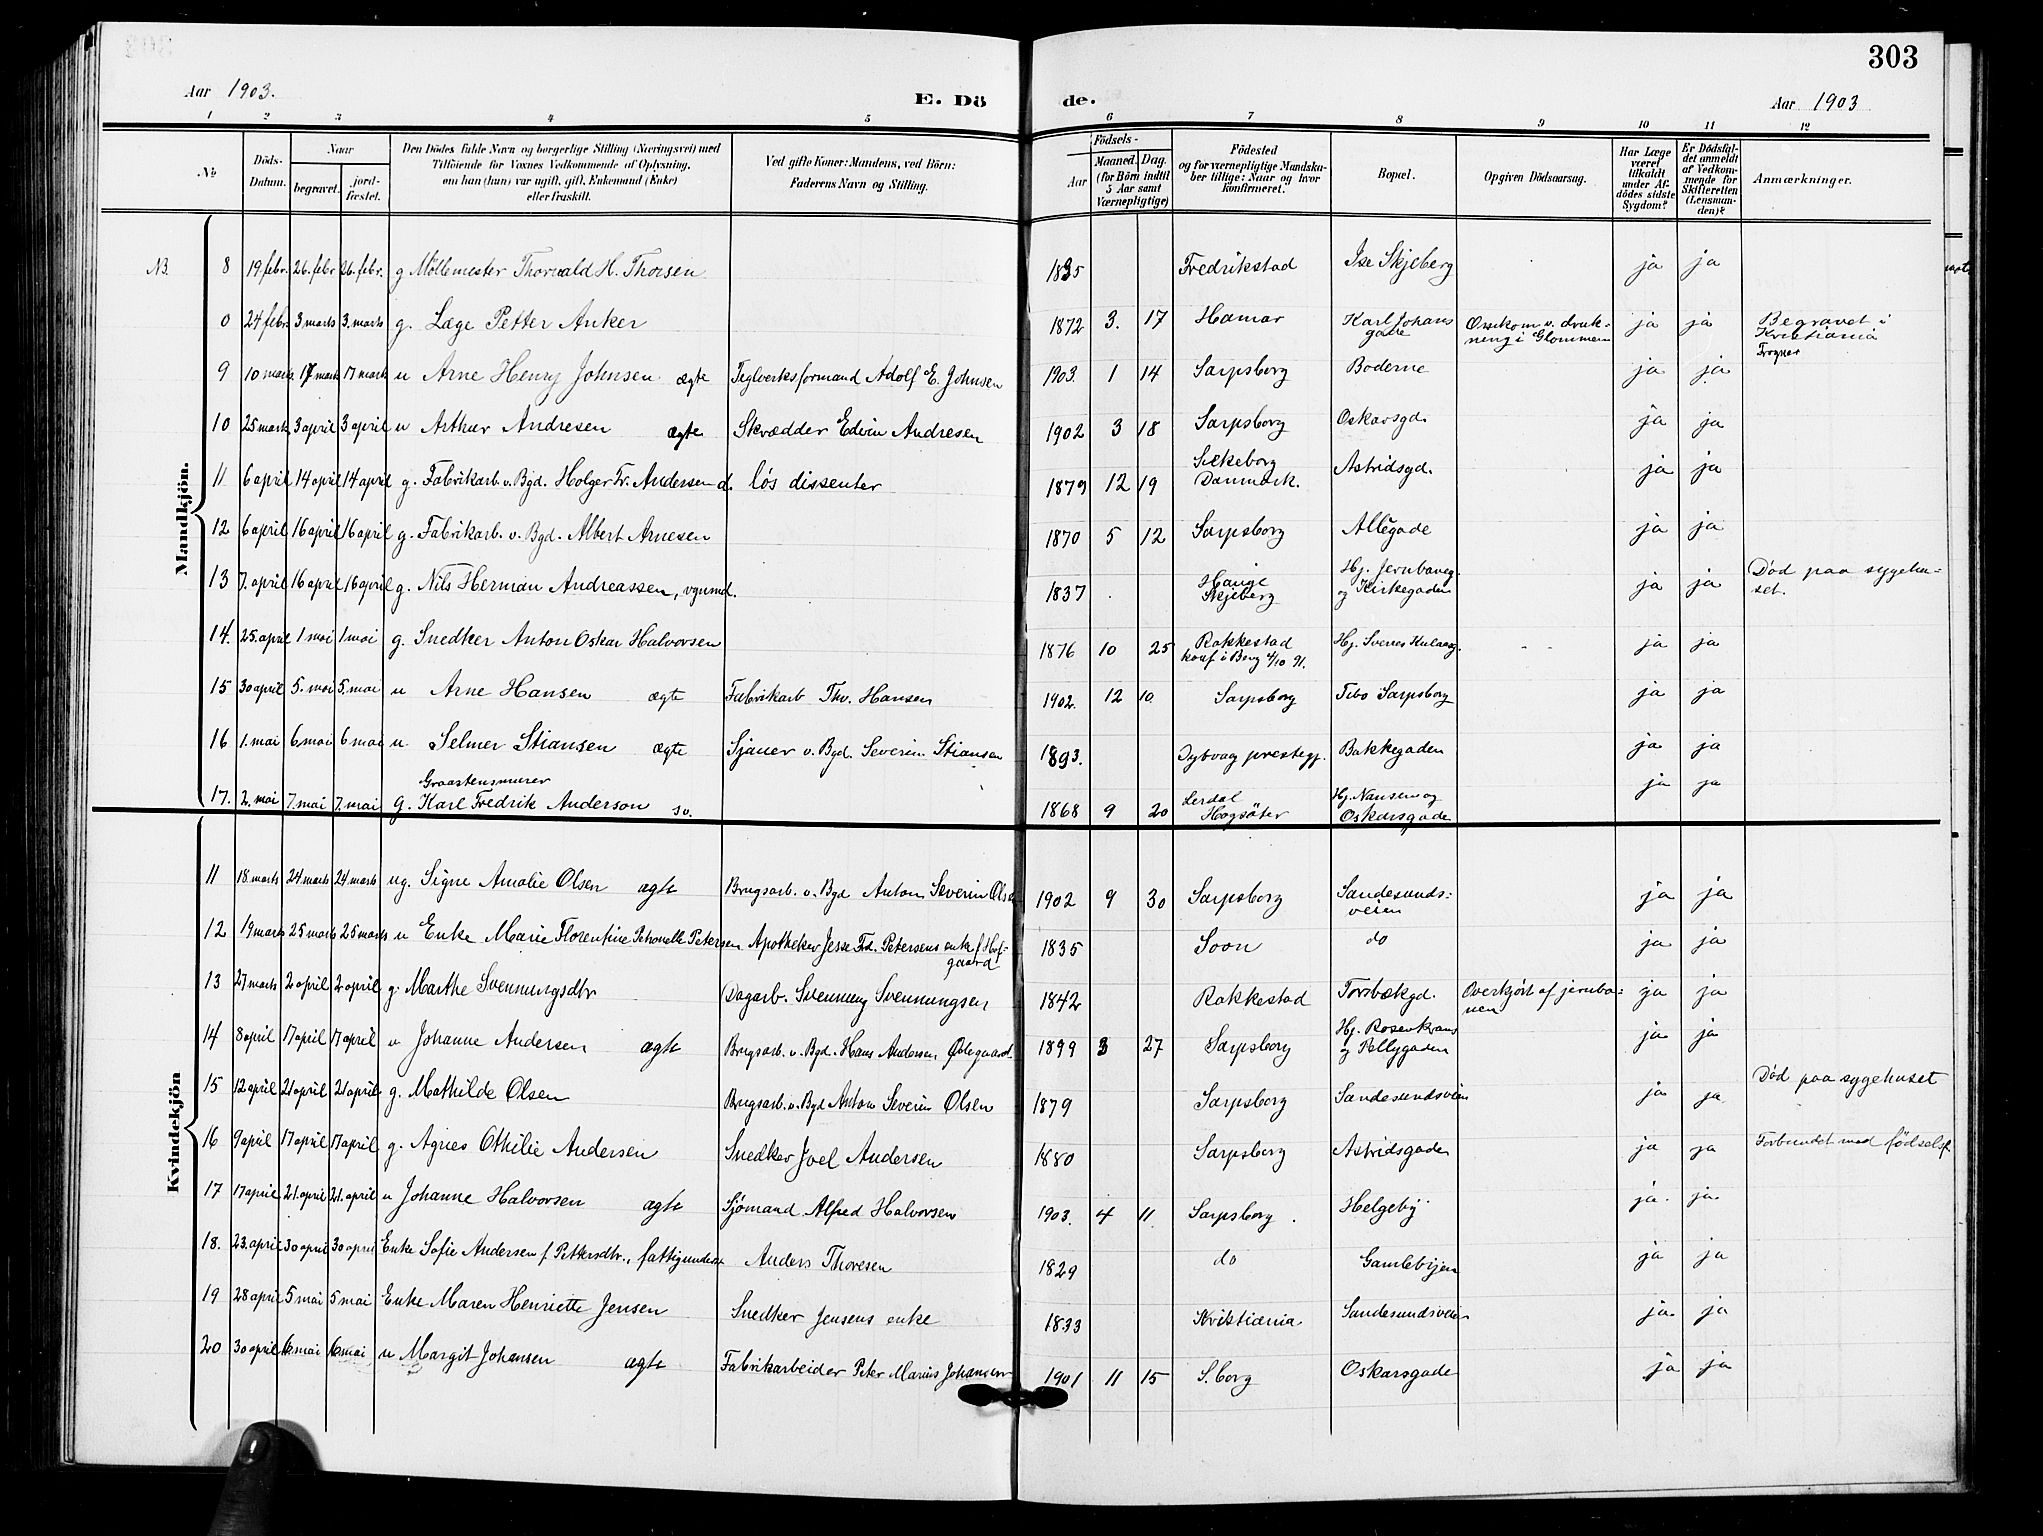 303
Aar 1903.
E. Dö de.
Aar 1903
1 2 3 4 5 6 7 8 9 10 11 12
No
Döds-Datum.
Naar
begravet.
jord-fæstet.
Den Dödes fulde Navn og borgerlige Stilling (Næringsvei) med Tilföiende for Voxnes Vedkommende af Oplysning, om han (hun) var ugift, gift, Enkemand (Enke) eller fraskilt.
Ved gifte Koner: Mandens, ved Börn: Faderens Navn og Stilling.
Födsels-
Aar
Maaned. Dag.
(for Börn indtil 5 Aar samt Værnepligtige)
Födested og for værnepligtige Mandskaber tillige: Naar og hvor konfirmeret.
Bopæl.
Opgiven Dödsaarsag.
Har Læge været tilkaldt under Afdödes sidste Sygdom?
Er Dödsfaldet anmeldt af Vedkommende for Skifteretten (Lensmanden)?
Anmærkninger.
Mandkjön.
N3. 8 19 febr. 26. febr 26. febr. g Möllemester Thorvald H. Thorsen 1835 Fredrikstad Ise Skjeberg ja ja
0 24 febr 3 marts 3. marts g. Læge Petter Anker 1872 3. 17 Hamar Karl Johans gade Omkom v. drukning i Glommen ja ja Begravet i Kristiania Frogner
9 10 marts 17 marts 17 marts u Arne Henry Johnsen ægte Teglverksformand Adolf E. Johnsen 1903. 1 14 Sarpsborg Boderne ja ja
10 25 marts 3 april 3 april u Arthur Andresen ægte Skrædder Edvin Andresen 1902 3 18 Sarpsborg Oskarsgd. ja ja
11 6 april 14 april 14 april g. Fabrikarb. v. Bgd. Holger Fr. Andersen d. løs dissenter 1879 12 19 Silkeborg Danmark. Astridsgd. ja ja
12 6 april 16 april 16 april g. Fabrikarb. v. Bgd. Albert Arnesen 1870 5 12 Sarpsborg Allégade ja ja
13 7. april 16 april 16 april g. Nils Herman Andreassen, vgnmd. 1837 Hauge Skjeberg Hj. Jernbaneg. og Kirkegaden ja ja Död paa sygehuset.
14. 25. april 1 mai 1 mai g. Snedker Anton Oskar Halvorsen 1876 10 25 Rakkestad konf i Berg 4/10 91. Hj. ja ja
15 30 april 5. mai 5. mai u Arne Hansen ægte Fabrikarb Thv. Hansen 1902. 12 10. Sarpsborg Tebo Sarpsborg ja ja
16 1. mai 6 mai 6 mai u. Selmer Stiansen ægte Sjauer v. Bgd. Severin Stiansen 1893. Dybvaag prestegj. Bakkegaden ja ja
Graastensmurer
17. 2. mai 7. mai 7. mai g. Karl Fredrik Anderson sv. 1868 9 20 Lerdal Högsäter Hj. Nansen og Oskarsgade ja ja
Kvindekjön
11 18 marts 24 marts 24 marts ug. Signe Amalie Olsen ægte Brugsarb. v. Bgd Anton Severin Olsen 1902 9 30 Sarpsborg Sandesundsveien ja ja
12 19 marts 25 marts 25 marts u Enke Marie Florentine Petronelle Petersen Apotheker Jesse Frd. Petersens enke f. Hofgaard 1835 Soon do ja ja
13 27 marts 2 april 2 april g. Marthe Svenningsdtr Dagarb. Svenning Svenningsen 1842 Rakkestad Torsbækgd. Overkjört af jernbanen ja ja
14 8 april 17 april 17 april u Johanne Andersen ægte Brugsarb. v. Bgd. Hans Andersen Ödegaard. 1899 3 27 Sarpsborg Hj. Rosenkrans og Pellygaden ja ja
15 12 april 21 april 21 april g. Mathilde Olsen Brugsarb. v. Bgd Anton Severin Olsen 1879 Sarpsborg Sandesundsveien ja ja Död paa sygehuset
16 9 april 17 april 17 april g. Agnes Othilie Andersen Snedker Joel Andersen 1880 Sarpsborg Astridsgaden ja ja Forbundet med födsels.
17 17 april 21. april 21. april u Johanne Halvorsen ægte Sjömand Alfred Halvorsen 1903. 4 11. Sarpsborg. Helgeby ja ja
18. 23. april 30 april 30 april Enke Sofie Andersen f. Pettersdtr., fattigunderst Anders Thoresen 1829 do Gamlebyen ja ja
19 28 april 5 mai 5 mai Enke Maren Henriette Jensen Snedker Jensens enke 1833 Kristiania Sandesundsveien ja ja
20 30 april 6 mai 6 mai u Margit Johansen ægte Fabrikarbeider Peter Marius Johansen 1901 11 15 S.borg Oskarsgade ja ja